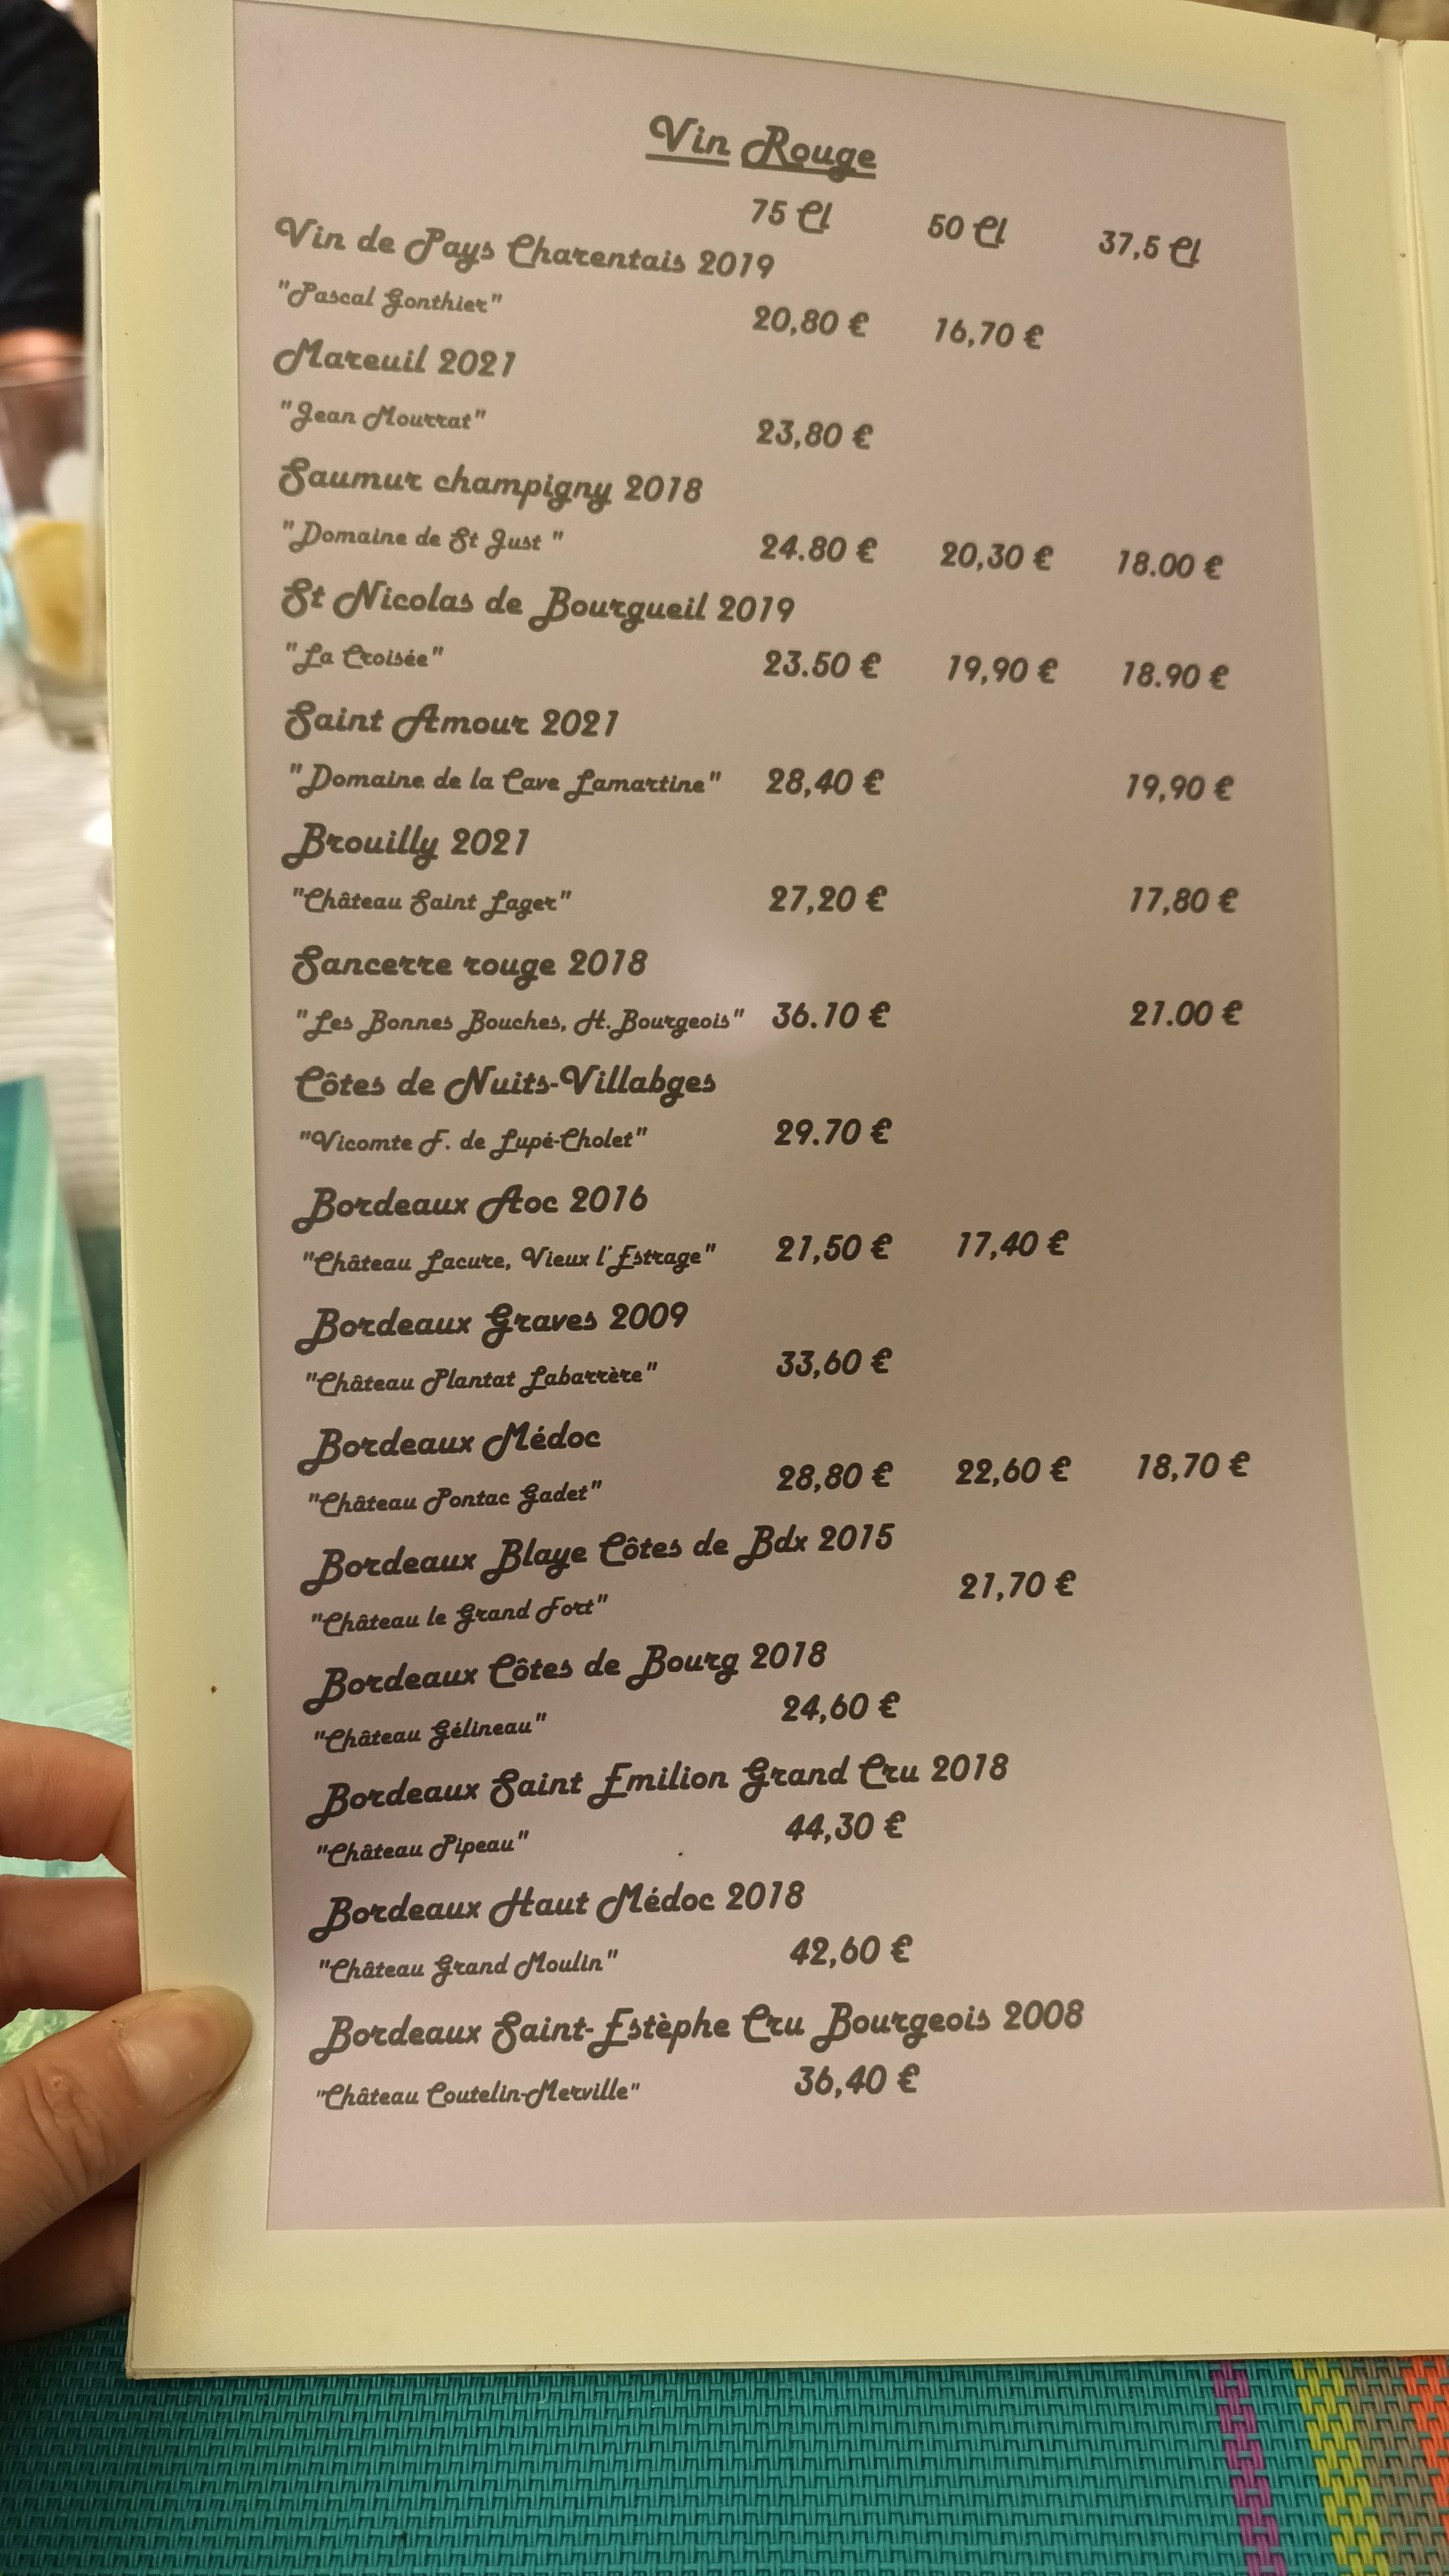 Vin Rouge
75 Cl 50 Cl 37,5 Cl
Vin de Pays Charentais 2019
"Pascal Gonthier" 20,80 € 16,70 €
Mareuil 2021
"Jean Mourrat" 23,80 €
Saumur champigny 2018
"Domaine de St Just " 24.80 € 20,30 € 18.00 €
St Nicolas de Bourgueil 2019
"La Croisée" 23.50 € 19,90 € 18.90 €
Saint Amour 2021
"Domaine de la Cave Lamartine" 28,40 € 19,90 €
Brouilly 2021
"Château Saint Lager" 27,20 € 17,80 €
Sancerre rouge 2018
"Les Bonnes Bouches, H.Bourgeois" 36.10 € 21.00 €
Côtes de Nuits-Villabges
"Vicomte F. de Lupé-Cholet" 29.70 €
Bordeaux Aoc 2016
"Château Lacure, Vieux l'Estrage" 21,50 € 17,40 €
Bordeaux Graves 2009
"Château Plantat Labarrère" 33,60 €
Bordeaux Médoc
"Château Pontac Gadet" 28,80 € 22,60 € 18,70 €
Bordeaux Blaye Côtes de Bdx 2015
"Château le Grand Fort" 21,70 €
Bordeaux Côtes de Bourg 2018
"Château Gélineau" 24,60 €
Bordeaux Saint Emilion Grand Cru 2018
"Château Pipeau" 44,30 €
Bordeaux Haut Médoc 2018
"Château Grand Moulin" 42,60 €
Bordeaux Saint-Estèphe Cru Bourgeois 2008
"Château Coutelin-Merville" 36,40 €